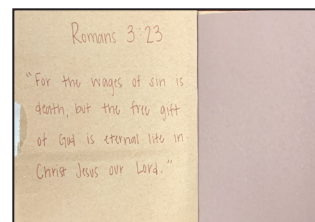 Romans 3:23
"For the wages of sin is
death, but the free gift
of God is eternal life in
Christ Jesus our Lord."